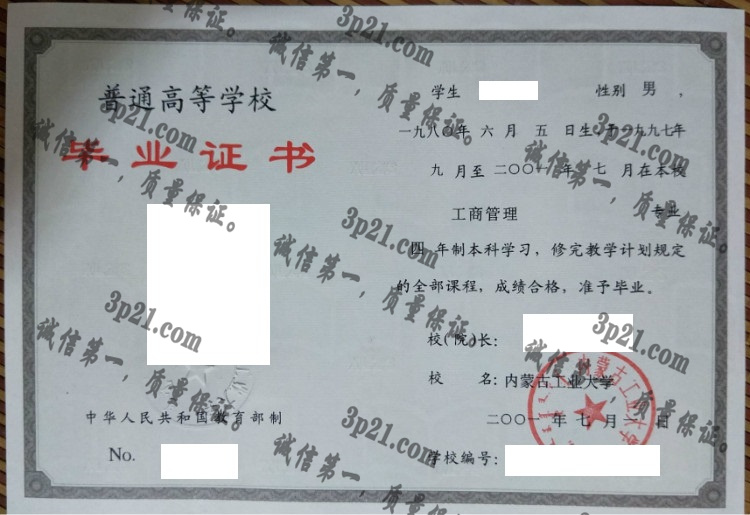 普通高等学校
毕业证书
中华人民共和国教育部制
No.
学生 性别 男 ,
一九八〇年 六 月 五 日生,于一九九七年
九 月至 二〇〇一 年 七 月在本校
工商管理 专业
四 年制本科学习，修完教学计划规定
的全部课程，成绩合格，准予毕业。
校(院)长:
校 名: 内蒙古工业大学
二〇〇一 年 七 月 日
学校编号:
内蒙古工业大学
3p21.com
诚信第一，质量保证。
3p21.com
诚信第一，质量保证。
3p21.com
诚信第一，质量保证。
3p21.com
诚信第一，质量保证。
3p21.com
诚信第一，质量保证。
3p21.com
诚信第一，质量保证。
3p21.com
诚信第一，质量保证。
3p21.com
诚信第一，质量保证。